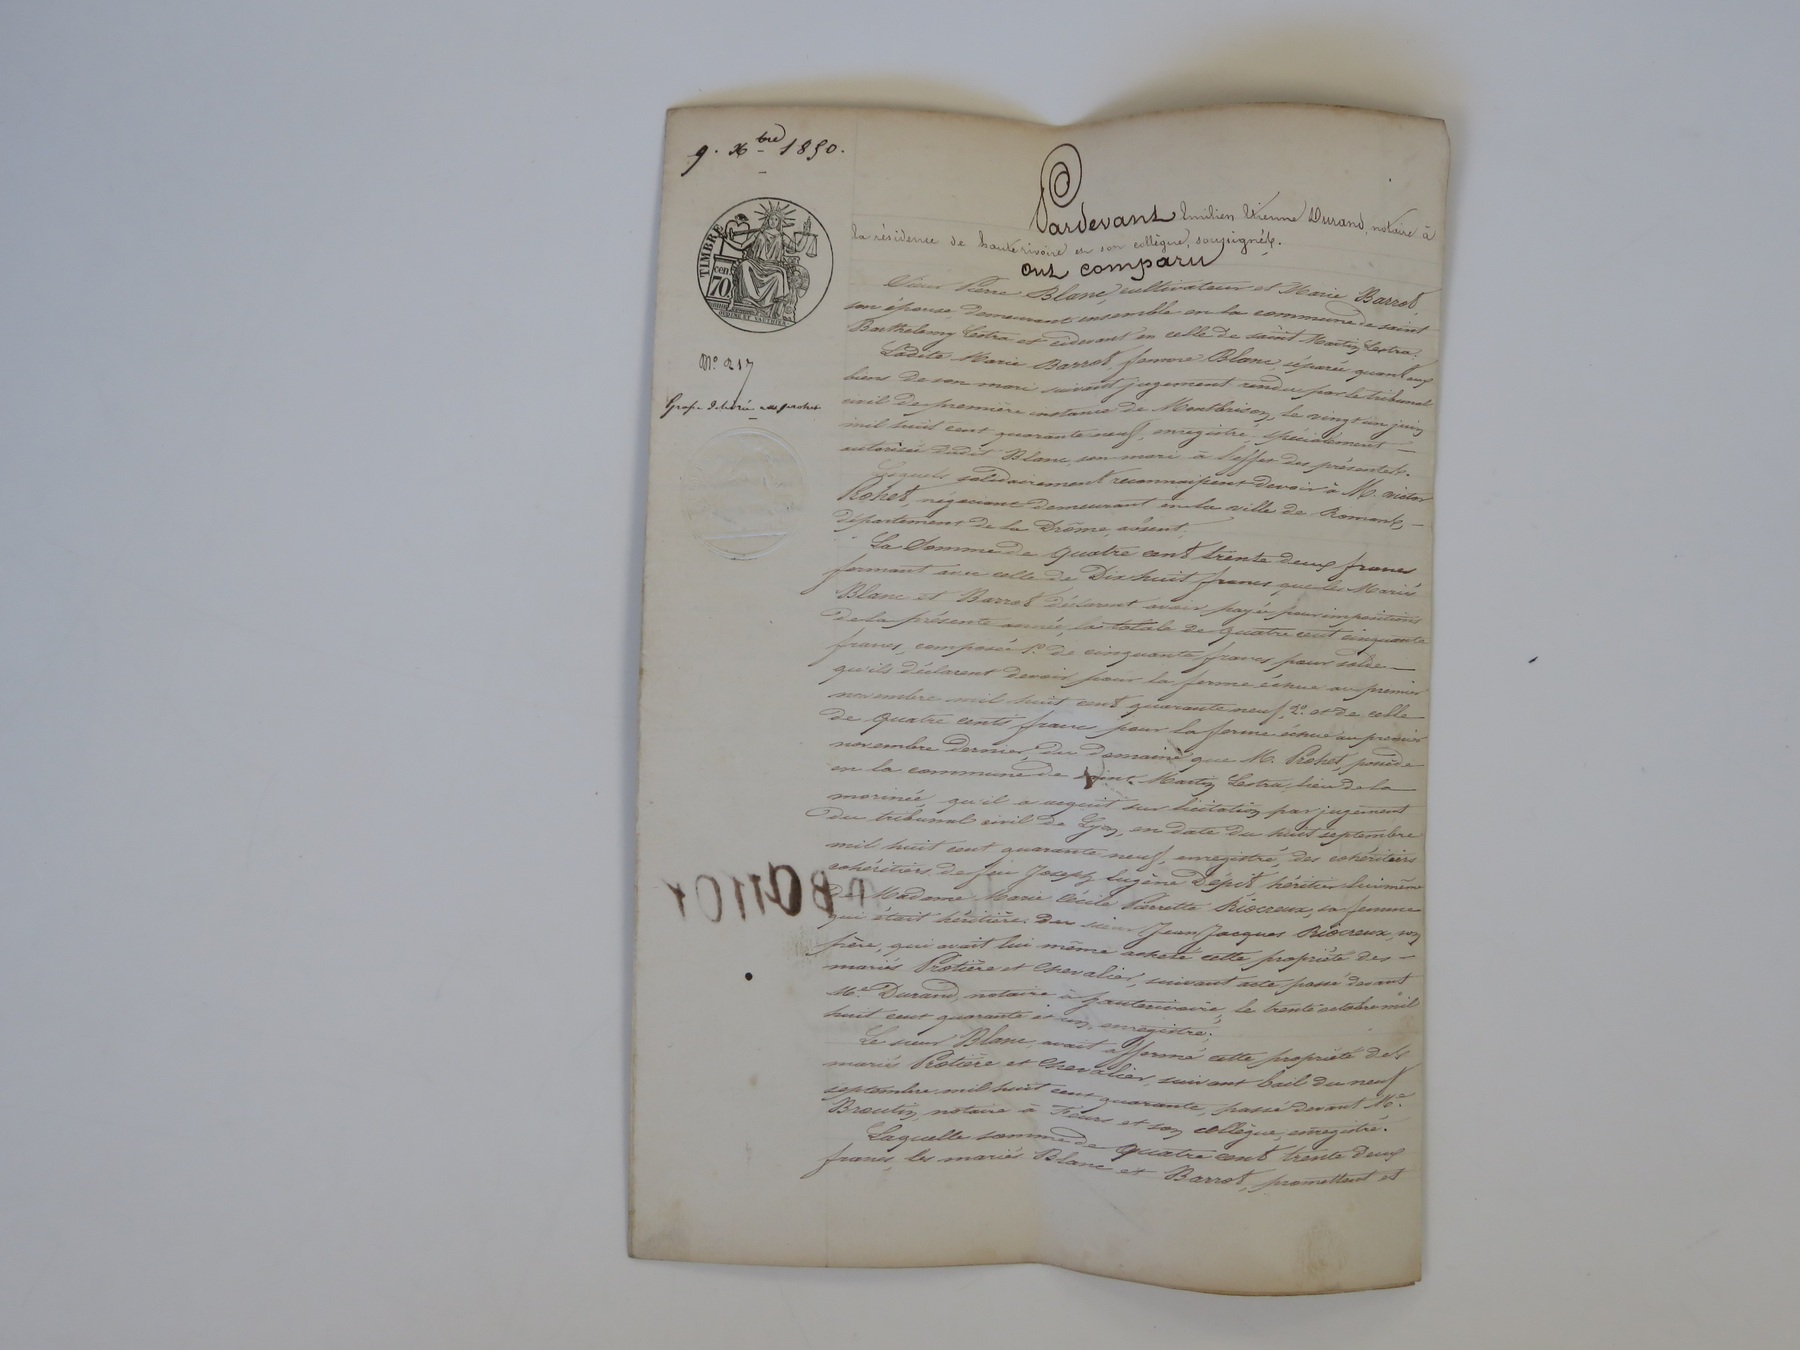 9. Xbre 1850.
TIMBRE
cen
70
Nº 217
Grosse délivrée
Pardevant Emilien Etienne Durand, notaire à
la résidence de hauterivoire et son collègue, soussignés.
ont comparu
Sieur Pierre Blanc, cultivateur et Marie Barrot,
son épouse demeurant ensemble en la commune de saint
Barthelemy Lestra et cidevant en celle de saint Martin Lestra.
Ladite Marie Barrot, femme Blanc, séparée quant aux
biens de son mari suivant jugement rendu par le tribunal
civil de première instance de Montbrison, le vingt un juin
mil huit cent quarante neuf, enregistré, spécialement
autorisée dudit Blanc, son mari à l'effet des présentes.
Lesquels solidairement reconnaissent devoir à M. victor
Rohet, négociant demeurant en la ville de Romans,
département de la Drôme, absent,
La Somme de quatre cent trente deux francs
formant avec celle de Dix huit francs que les Mariés
Blanc et Barrot déclarent avoir payée pour impositions
de la présente année, la totale de quatre cent cinquante
francs, composée 1º. de cinquante francs pour solde
qu'ils déclarent devoir pour la ferme échue au premier
novembre mil huit cent quarante neuf, 2º. et de celle
de quatre cents francs pour la ferme échue au premier
novembre dernier, du domaine que M. Rohet, possède
en la commune de saint Martin Lestra, lieu de la
morinée, qu'il a acquit sur licitation par jugement
du tribunal civil de Lyon, en date du huit septembre
mil huit cent quarante neuf, enregistré, des cohéritiers
cohéritiers de feu Joseph Eugène Dépit héritier lui même
de Madame Marie Cécile Pierrette Riocreux, sa femme
qui était héritière du sieur Jean Jacques Riocreux, son
frère, qui avait lui même acheté cette propriété des
mariés Protière et Chevalier, suivant acte passé devant
Me. Durand, notaire à hauterivoire, le trente octobre mil
huit cent quarante et un, enregistré;
Le sieur Blanc, avait affermé cette propriété des
mariés Protière et Chevalier, suivant bail du neuf
septembre mil huit cent quarante, passé devant Me.
Broutin, notaire à Feurs et son collègue, enregistré.
Laquelle somme de quatre cent trente deux
francs, les mariés Blanc et Barrot, promettent et